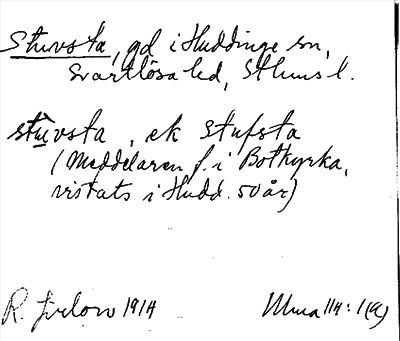 Stuvsta, gd i Huddinge sn,
Svartlösa hd, Sthms l.
stuvsta, ek Stufsta
(Meddelaren f. i Botkyrka,
vistats i Hudd. 50 år)
R. 1914
114: 1(a)